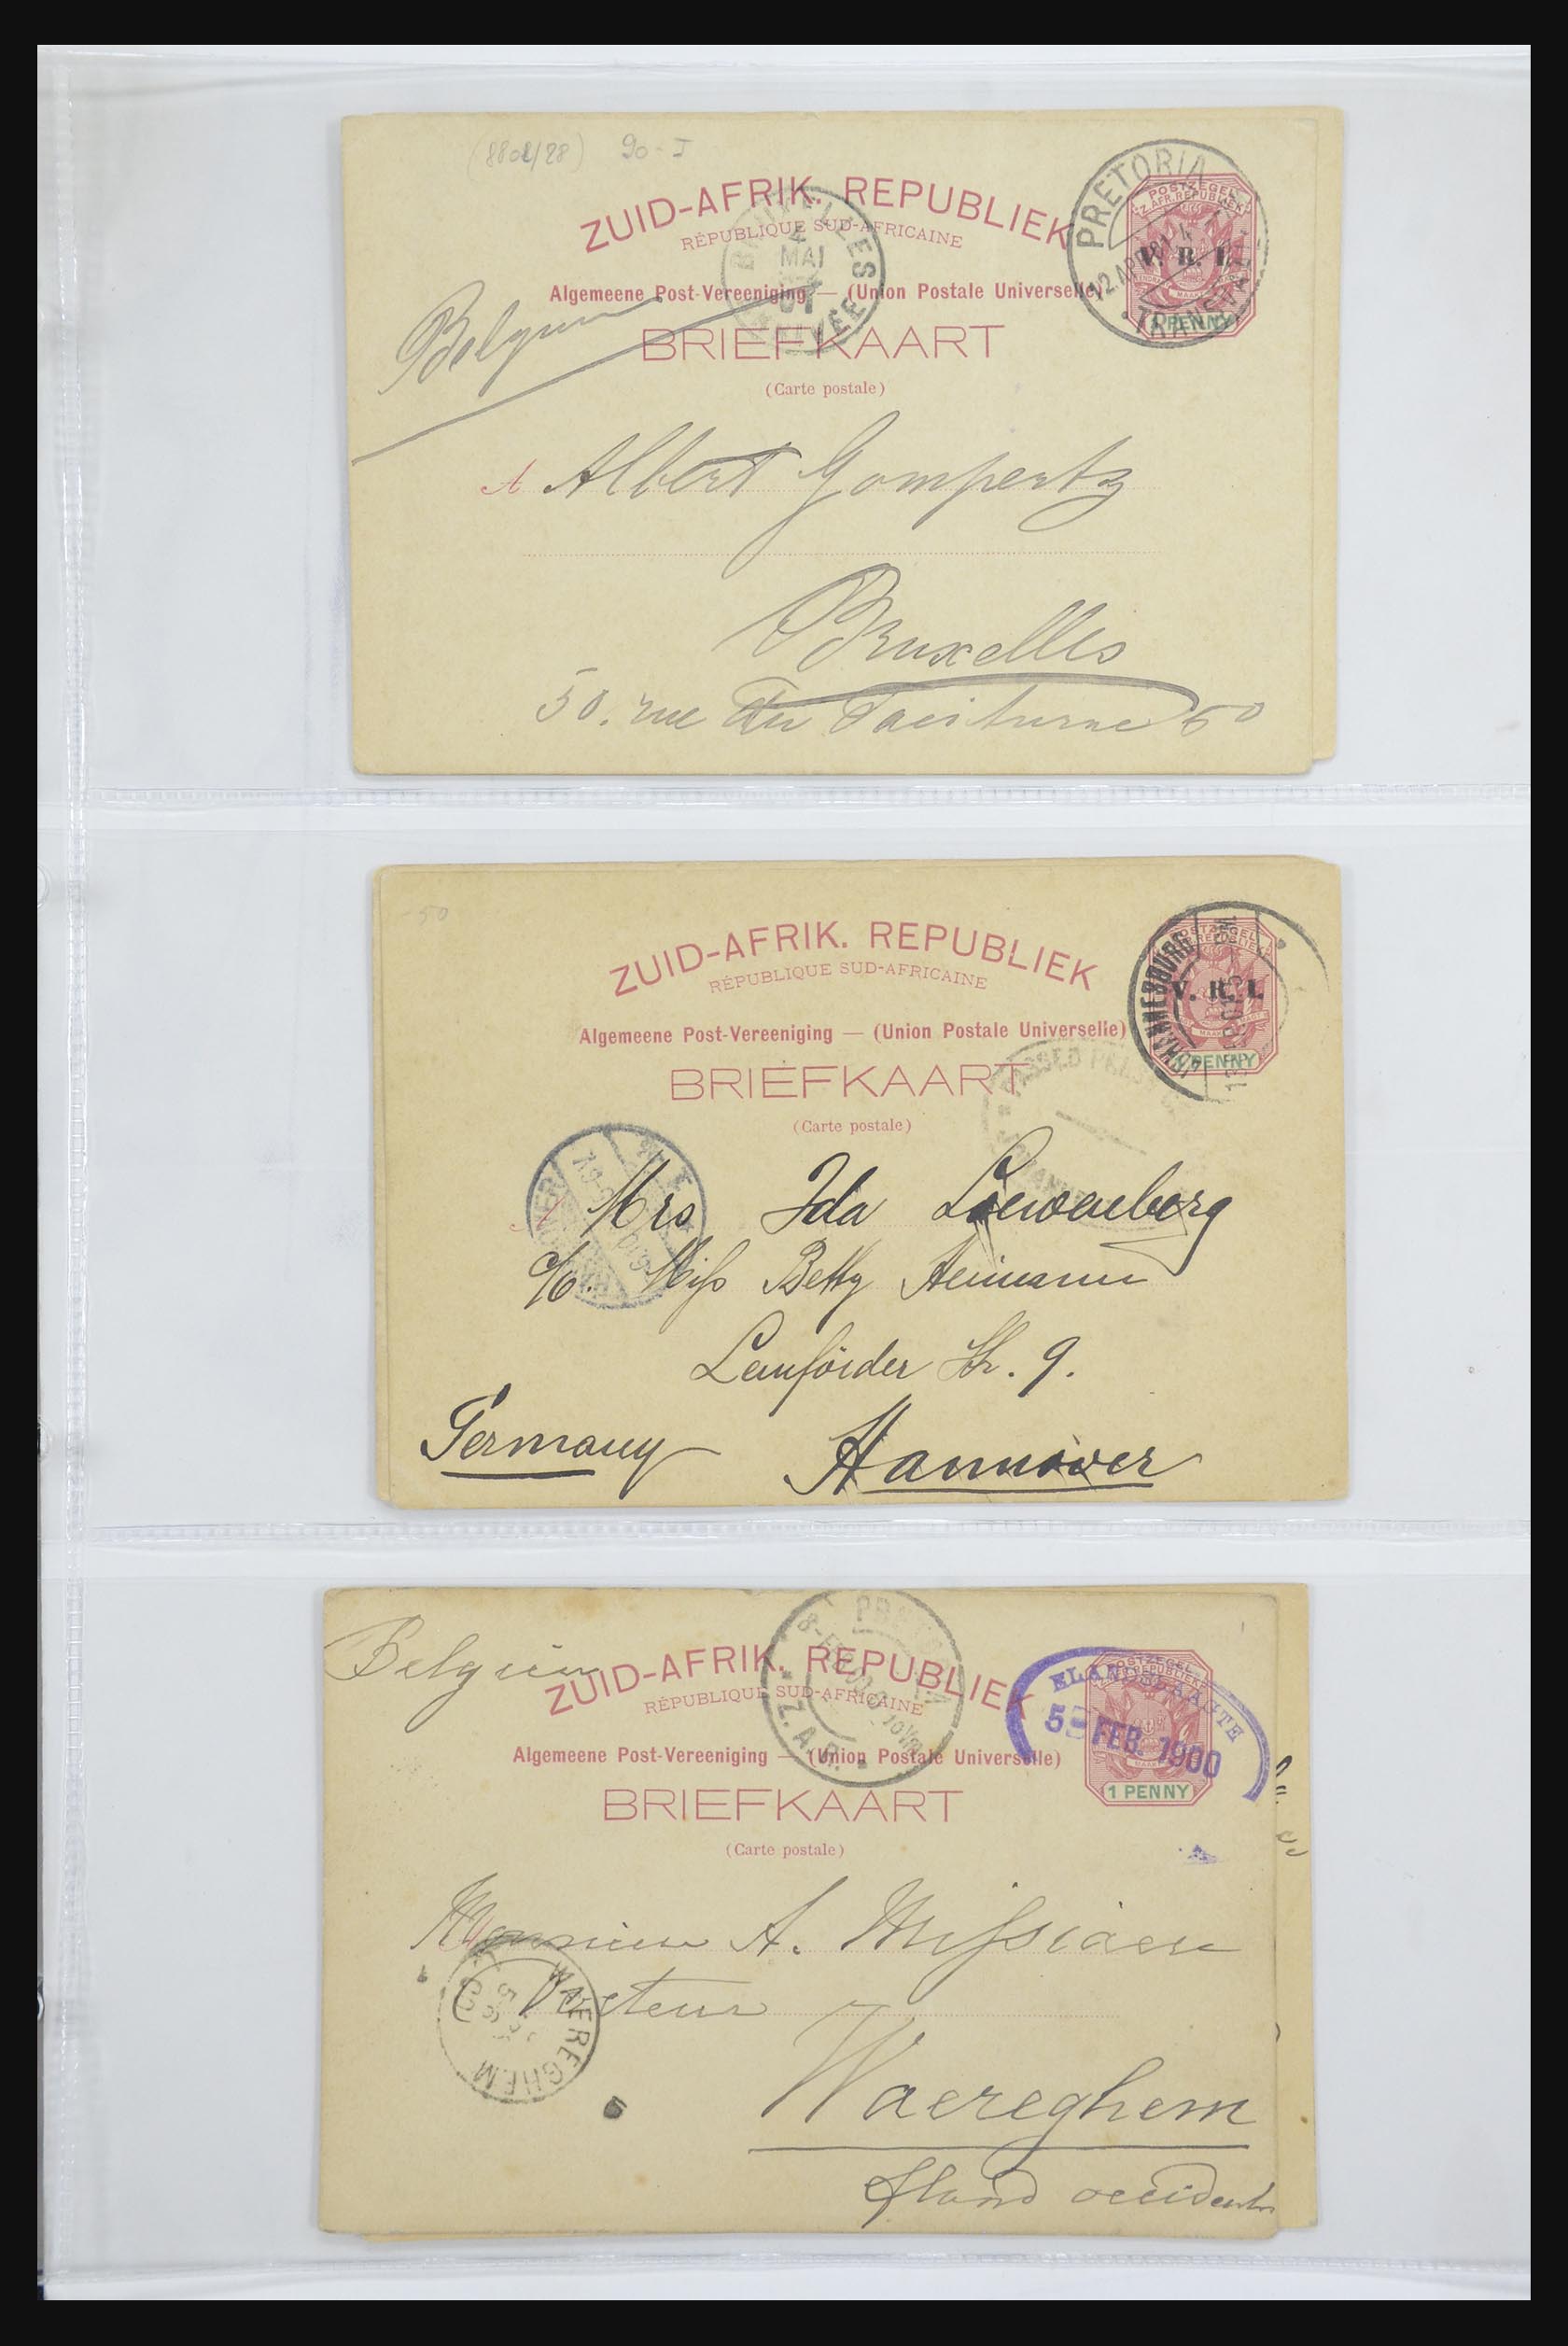 (8801/28) 90-I
ZUID-AFRIK. REPUBLIEK
RÉPUBLIQUE SUD-AFRICAINE
Algemeene Post-Vereeniging — (Union Postale Universelle)
BRIEFKAART
(Carte postale)
PRETORIA
TRANSVAAL
POSTZEGEL
Z. AFR. REPUBLIEK
V. R. I.
1 PENNY
BRUXELLES
4
MAI
01
ARRIVÉE
Belgium
A Albert Gompertz
Bruxelles
50. rue du Taciturne 50
-50
ZUID-AFRIK. REPUBLIEK
RÉPUBLIQUE SUD-AFRICAINE
Algemeene Post-Vereeniging — (Union Postale Universelle)
BRIEFKAART
(Carte postale)
JOHANNESBOURG
POSTZEGEL
V. R. I.
1 PENNY
PASSED PRESS
Mrs Ida Loewenberg
c/o. Miss Betty Heimann
Lemförder Str. 9.
Germany Hannover
Belgien
ZUID-AFRIK. REPUBLIEK
RÉPUBLIQUE SUD-AFRICAINE
Algemeene Post-Vereeniging — (Union Postale Universelle)
BRIEFKAART
(Carte postale)
PRETORIA
8-FEB 00
Z.A.R.
ELANDSLAAGTE
5 - FEB. 1900
POSTZEGEL
1 PENNY
Monsieur A. Missiaen
Docteur
WAEREGHEM
Waereghem
fland occident